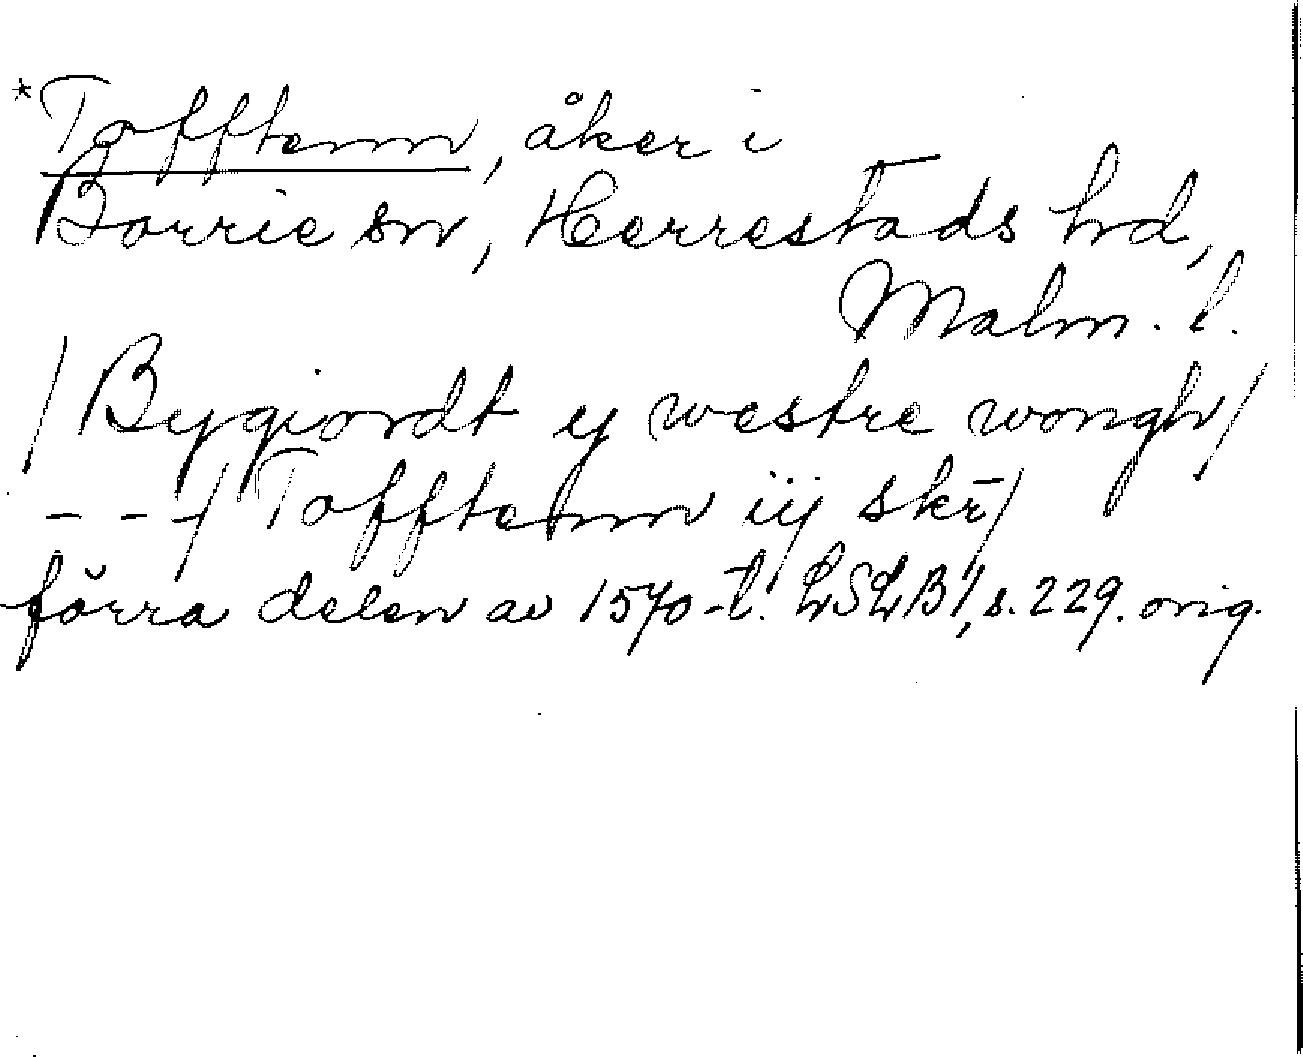 *Tofftenn, åker i
Borrie sn, Herrestads hd,
Malm. l.
/Bygiordt ij westre wongh/
- - -/ Tofftenn iij skr̄/
förra delen av 1570-t. LSLB1, s. 229. orig.